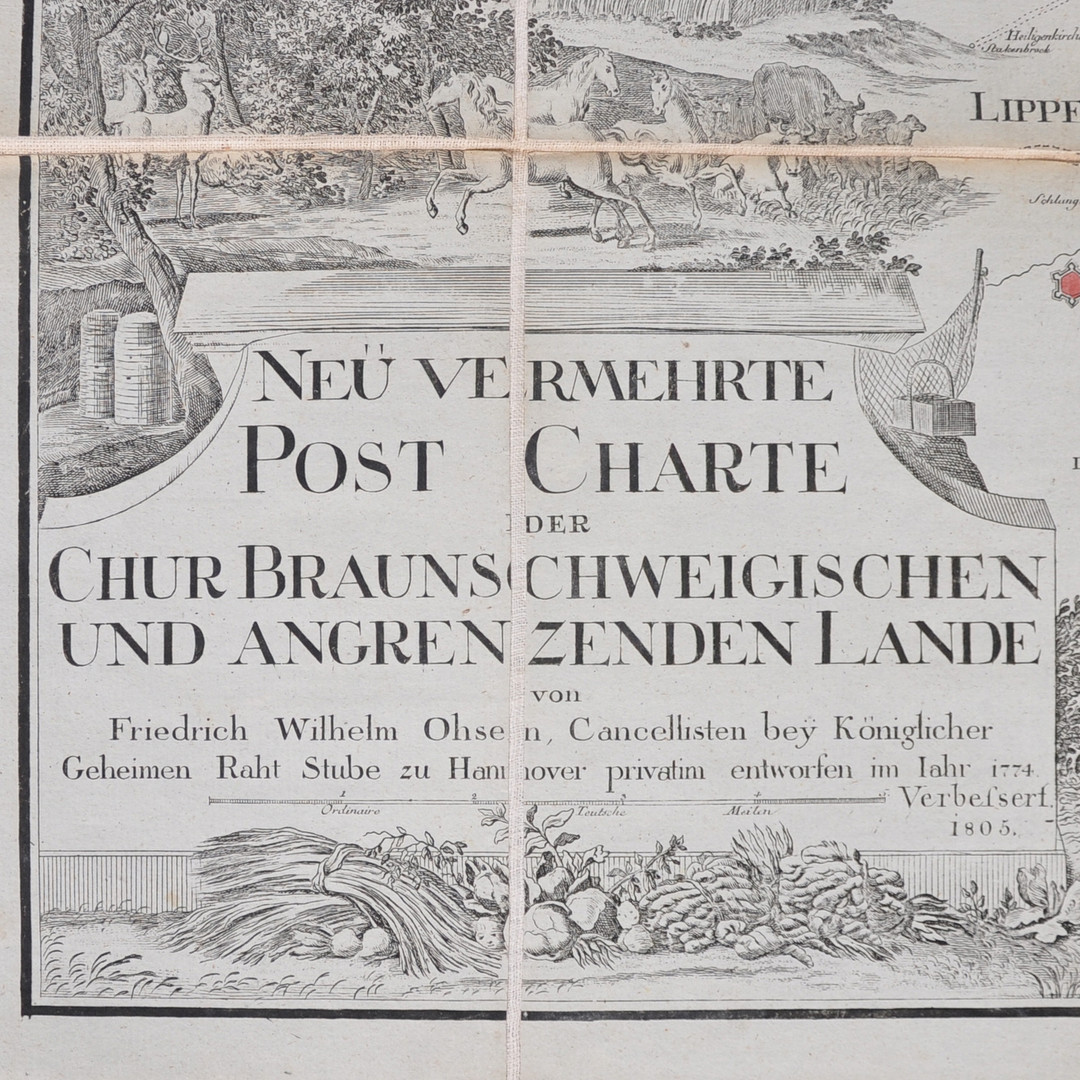 Heiligenkirch
Stakenbrock
LIPPE
Schlang
NEÜ VERMEHRTE
POST CHARTE
DER
CHUR BRAUNSCHWEIGISCHEN
UND ANGRENZENDEN LANDE
von
Friedrich Wilhelm Ohsen, Cancellisten beÿ Königlicher
Geheimen Raht Stube zu Hannover privatim entworfen im Iahr 1774.
1 2 3 4 5
Ordinaire Teutsche Meilen
Verbeſsert.
1805.